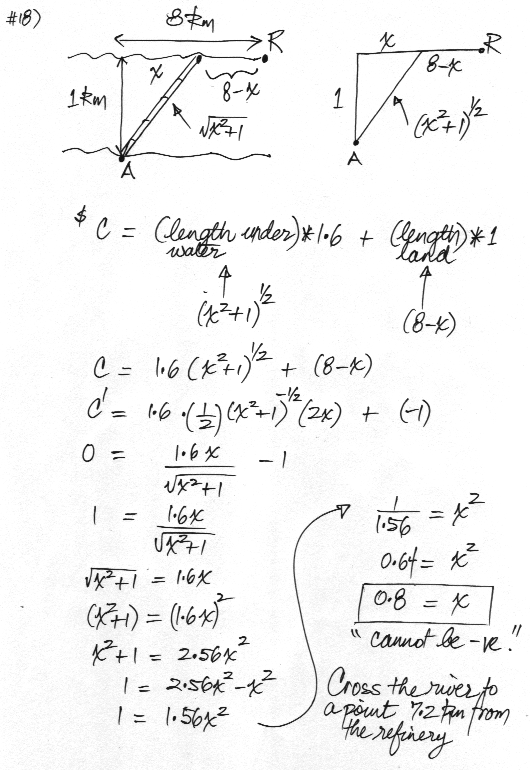 #18)
8 km
R
x
8-x
1 km
√x²+1
A
x
R
8-x
1
(x²+1)^1/2
A
$ C = (length under water)*1.6 + (length land)*1
(x²+1)^1/2
(8-x)
C = 1.6 (x²+1)^1/2 + (8-x)
C' = 1.6 · (1/2) (x²+1)^-1/2 (2x) + (-1)
0 = 1.6x / √x²+1 - 1
1 = 1.6x / √x²+1
√x²+1 = 1.6x
(x²+1) = (1.6x)²
x²+1 = 2.56x²
1 = 2.56x² - x²
1 = 1.56x²
1 / 1.56 = x²
0.64 = x²
0.8 = x
"cannot be -ve."
Cross the river to
a point 7.2 km from
the refinery